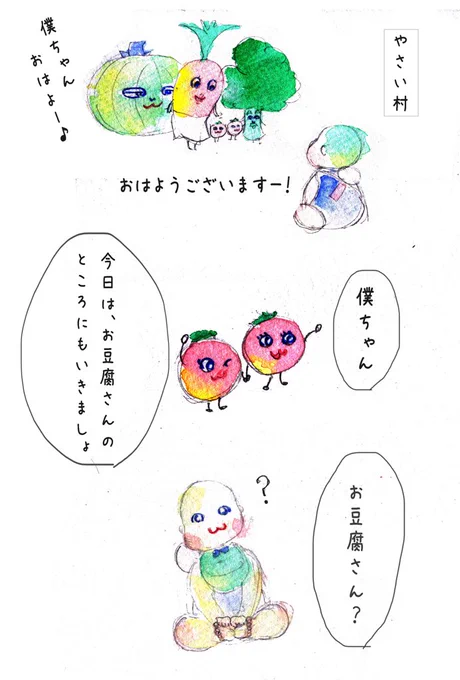 やさい村
僕ちゃん
おはよー♪
おはようございますー!
僕ちゃん
今日は、お豆腐さんの
ところにもいきましょ
?
お豆腐さん?